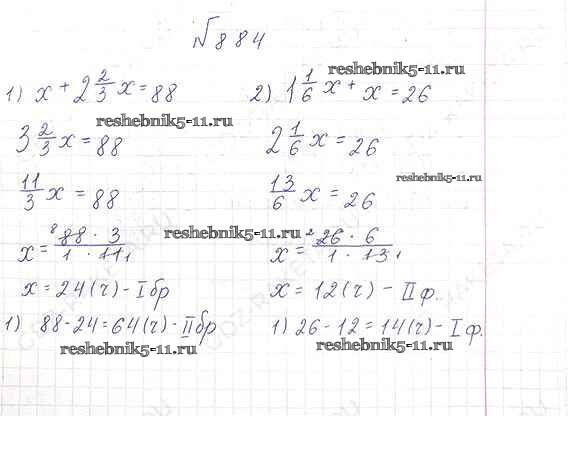 № 884
1) x + 2 2/3 x = 88
3 2/3 x = 88
11/3 x = 88
x = 88 · 3 / 1 · 11
x = 24 (г) - I бр
1) 88 - 24 = 64 (г) - II бр
2) 1 1/6 x + x = 26
2 1/6 x = 26
13/6 x = 26
x = 26 · 6 / 1 · 13
x = 12 (г) - II ф.
1) 26 - 12 = 14 (г) - I ф.
reshebnik5-11.ru
reshebnik5-11.ru
reshebnik5-11.ru
reshebnik5-11.ru
reshebnik5-11.ru
reshebnik5-11.ru